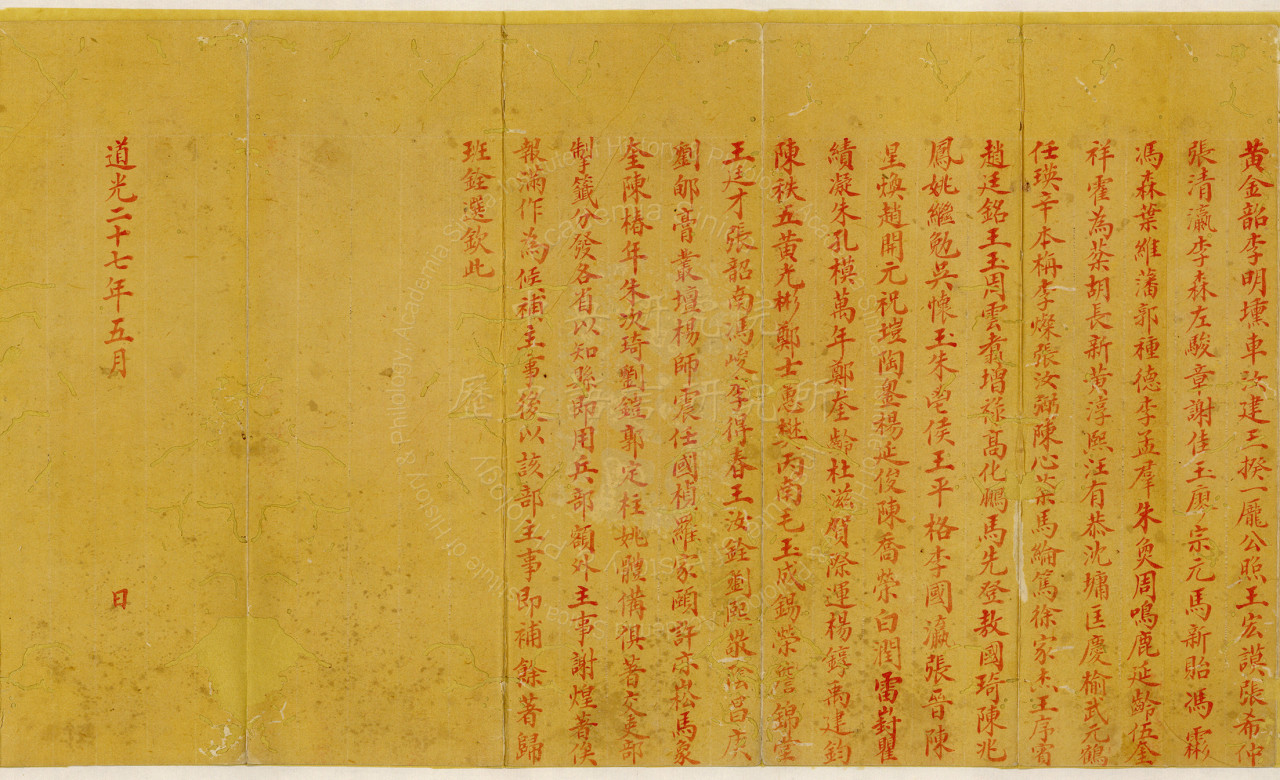 黃金韶李明壎車汝建王揆一龐公照王宏謨張希仲
張清瀛李森左駿章謝佳玉廖宗元馬新貽馮霦
馮森葉維藩郭種德李孟羣朱奐周鳴鹿延齡伍奎
祥霍為棻胡長新黃淳熙汪有恭沈墉匡慶榆武元鶴
任瑛辛本梅李燦張汝弼陳心棻馬綸篤徐家杰王序賓
趙廷銘王玉周雲煮增祿高化鵬馬先登敖國琦陳兆
鳳姚繼勉吳懷玉朱鬯侯王平格李國瀛張晉陳
星煥趙開元祝塏陶鋆楊延俊陳喬榮白潤雷封瞿
績凝朱孔模萬年鄭奎齡杜滋賀際運楊錞禹建鈞
陳秩五黃光彬鄭士惠丙南毛玉成錫榮詹錦堂
王廷才張韶南馮峻李得春王汝銓劉熙敬蔭昌庚
劉郇膏叢壇楊師震任國楨羅家頤許亦崧馬象
奎陳椿年朱次琦劉鎧郭定柱姚體備俱著交吏部
掣籤分發各省以知縣即用兵部額外主事謝煌著俟
報滿作為候補主事後以該部主事即補餘著歸
班銓選欽此
道光二十七年五月 日